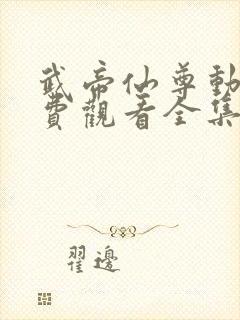 武帝仙尊動
費觀看全集
翟邊